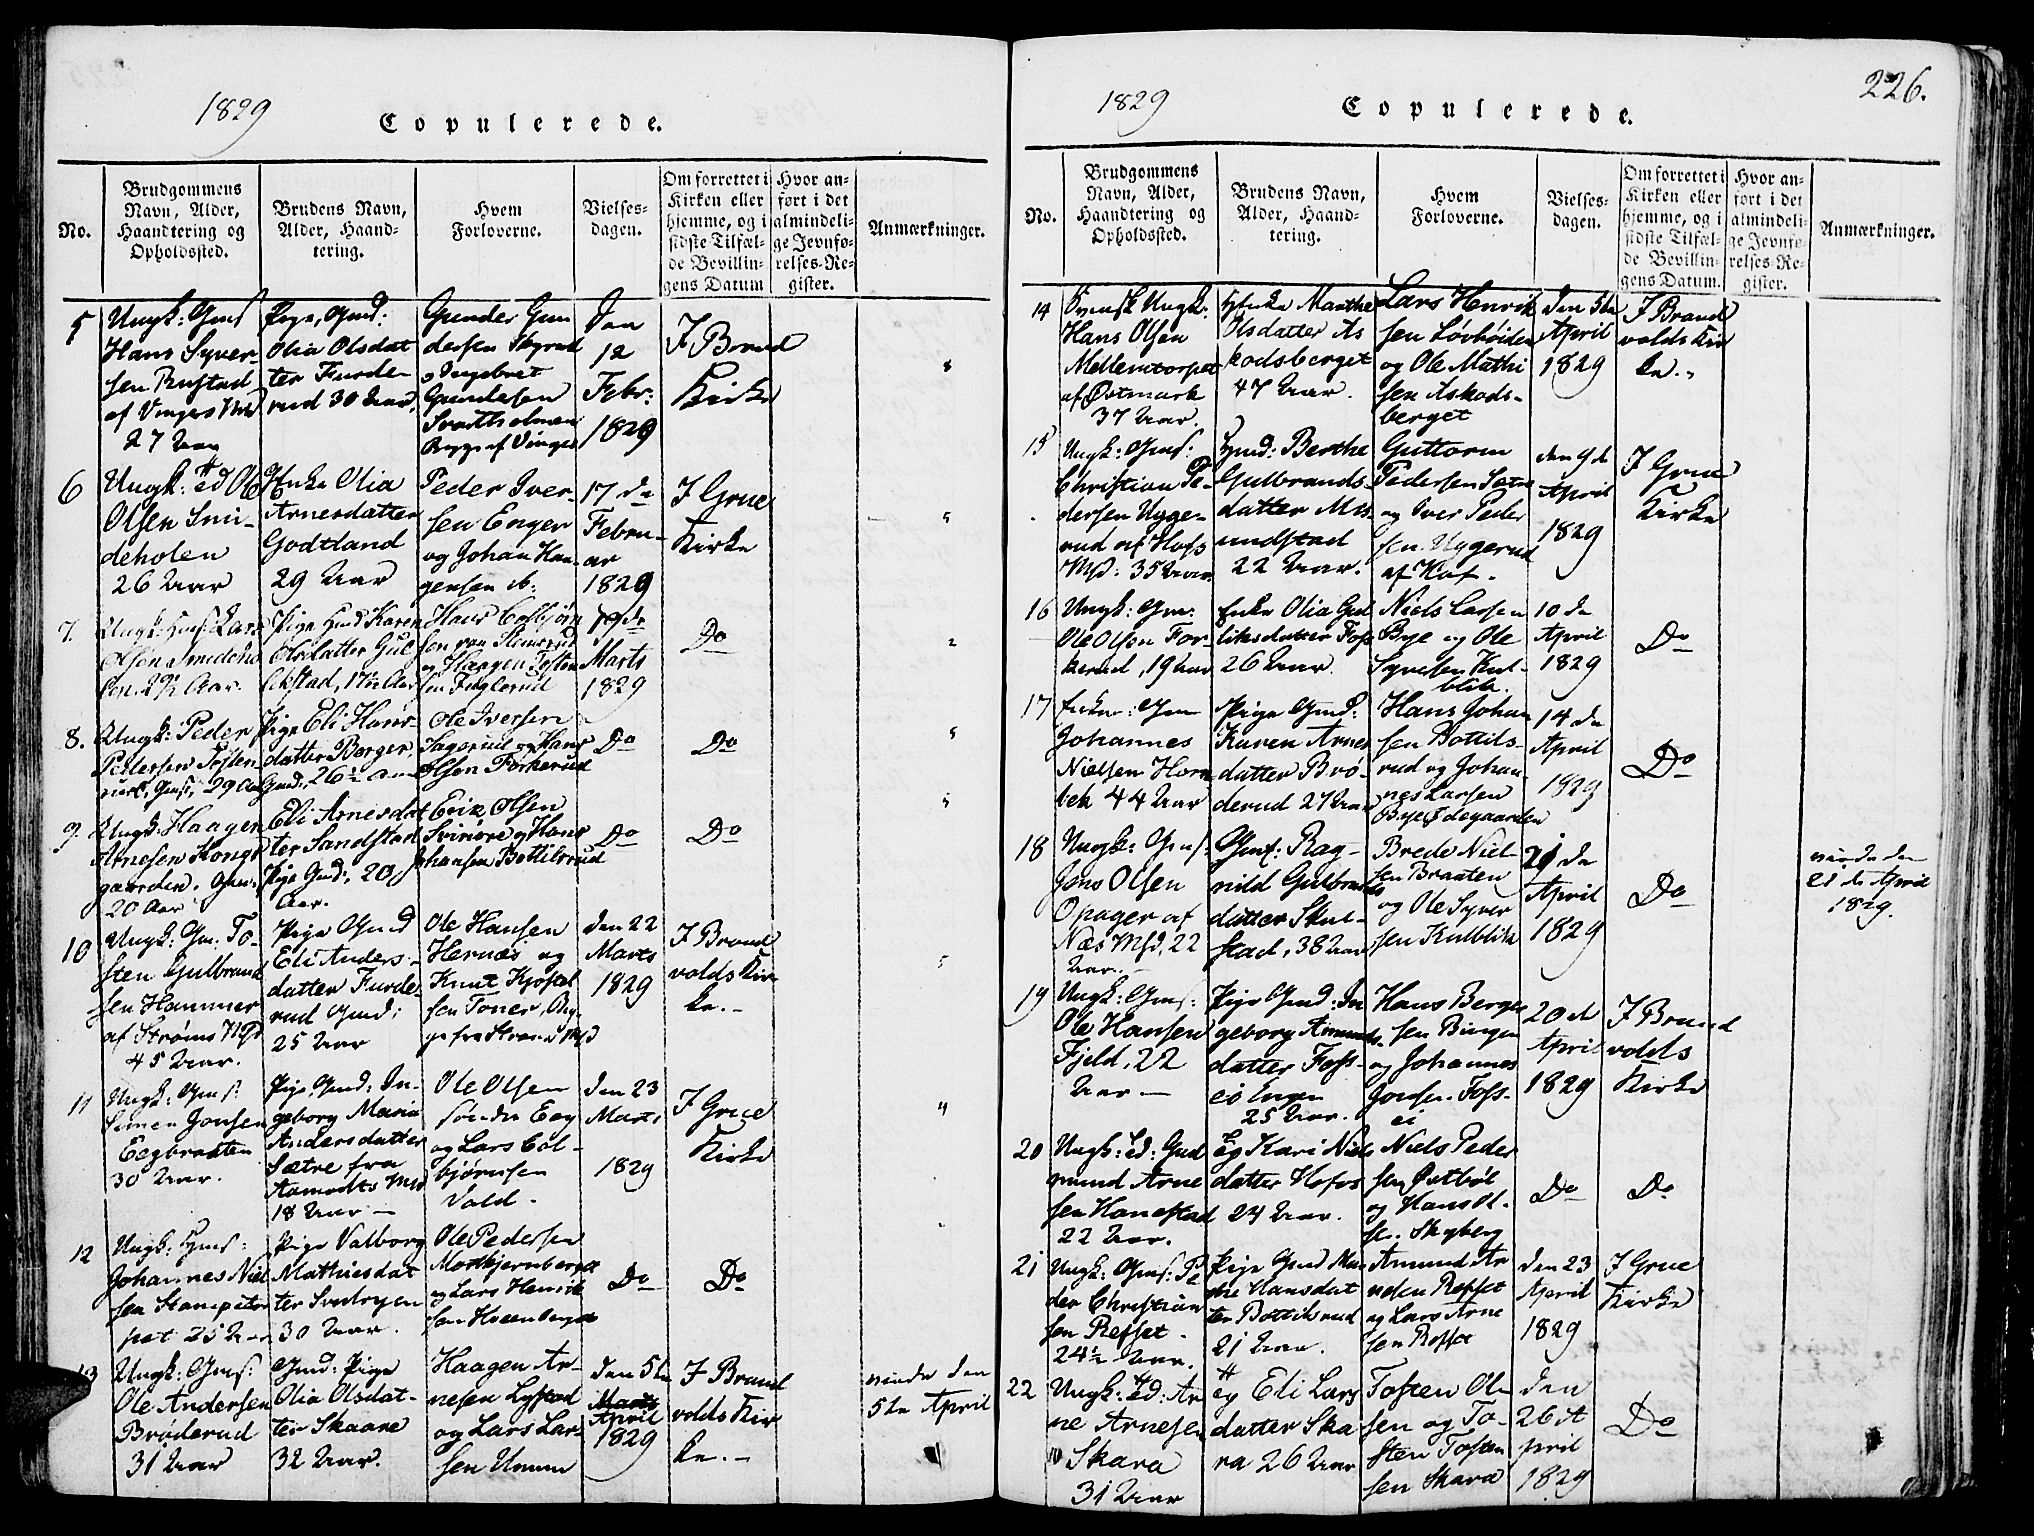 1829
Copulerede.
No.
Brudgommens
Navn, Alder,
Haandtering og
Opholdssted.
Brudens Navn,
Alder, Haand-
tering.
Hvem
Forloverne.
Vielses-
dagen.
Om forrettet i
Kirken eller
hjemme, og i
sidste Tilfæl-
de Bevillin-
gens Datum
Hvor an-
ført i det
almindeli-
ge Jevnfø-
relses-Re-
gister.
Anmærkninger.
5
Ungk: Gms
Hans Syver-
sen Rustad
af Vingers
27 Aar
Pige, Gmd:
Olia Olsdat
ter Furde-
rud 30 Aar,
Gunder Gun
dersen Skyrud
og Ingebret
Gundersen
Svartholmen
Bygge af Vinger
Den
12
Febr:
1829
I Brand
Kirke
6
Ungk: Ed Ole
Olsen Smi-
deholen
26 Aar
Enke Olia
Arnesdatter
Godtland
29 Aar
Peder Iver-
sen Enger
og Johan Haa-
gensen
17 de
Febru-
ar
1829
I Grue
Kirke
7.
Ungk: Hms: Lars
Olsen Smideho
len. 29½ Aar.
Pige Hmd Karen
Olsdatter Gul
likstad, 17½ Aar
Hans Colbjørn
sen
og Haagen Tosten
sen Fuglerud
Marts
1829
Do
8.
Ungk: Peder
Pedersen Tosten
rud, Gms, 29 Aar
Pige Eli Hans-
datter Berger,
Gmd:, 26½ Aar
Ole Iversen
Sagerud og Hans
Olsen Forkerud
Do
Do
9.
Ungk: Haagen
Arnesen Kongs
gaarden, Gms:
20 Aar
Eli Arnesdat
ter Sandstad
Pige Gmd:, 20
Aar.
Erik Olsen
Svinøre og Hans
Johansen Bottilsrud
Do
Do
10
Ungk: Gm: To-
sten Gulbrand
sen Hammer
af Strøms
45 Aar.
Pige Gmd
Eli Anders-
datter Furde-
rud Gmd:
25 Aar
Ole Hansen
Hernæs og
Knut Kjøstel
sen Toner, Byg-
ge fra Strøm
den 22
Marts
1829
I Brand
volds Kir
ke.-
11
Ungk: Gms:
Simen Jonsen
Eegbraaten
30 Aar.
Pige, Gmd: In-
geborg Maria
Andersdatter
Sætre fra
Aamodts
18 Aar -
Ole Olsen
søndre Eeg
og Lars Col-
bjørnsen
Vold.
den 23
Marts
1829
I Grue
Kirke
12
Ungk: Hms:
Johannes Niel
sen Stempetor
pet 25 Aar
Pige Valborg
Mathiesdat
ter Svedryen
30 Aar.
Ole Pedersen
Morkjernberget
og Lars Henrik
sen Hveenberget
Do
Do
13
Ungk: Gms:
Ole Andersen
Brøderud
31 Aar
Gmd: Pige
Olia Olsdat-
ter Skaare
32 Aar.
Haagen Ar-
nesen Lystad
og Lars Lar-
sen Unum
den 5te
Marts
April
1829
I Brand
volds Kir
ke.-
den
5te April
1829
Copulerede.
226.
No.
Brudgommens
Navn, Alder,
Haandtering og
Opholdssted.
Brudens Navn,
Alder, Haand-
tering.
Hvem
Forloverne.
Vielses-
dagen.
Om forrettet i
Kirken eller
hjemme, og i
sidste Tilfæl-
de Bevillin-
gens Datum.
Hvor an-
ført i det
almindeli-
ge Jevnfø-
relses-Re-
gister.
Anmærkninger.
14
Svensk Ungk:
Hans Olsen
Mellemtorpet
af Østmark
37 Aar.
Enke Marthe
Olsdatter As
kodsberget
47 Aar.
Lars Henrik
sen Løvhøiden
og Ole Mathi
sen Askods-
berget
den 5te
April
1829
I Brand
volds Kir
ke.-
15
Ungk: Gms:
Christian Pe-
dersen Ugge-
rud af Hofs
35 Aar
Gmd: Berthe
Gulbrands-
datter Mu-
undstad
22 Aar.
Guttorm
Pedersen Sætre
og Iver Peder
sen Uggerud
af Hof.
den 9de
April
1829
I Grue
Kirke
16
Ungk: Gm:
Ole Olsen For-
kerud, 19 Aar
Enke Olia Gul
liksdatter Foss
26 Aar.
Niels Larsen
Bye og Ole
Syversen Kul-
blik.
10 de
April
1829
Do
17
Enkem: Gm
Johannes
Nielsen Horn
bek 44 Aar
Pige Gmd:
Karen Arnes
datter Brø-
derud 27 Aar
Hans Johan
sen Bottils-
rud og Johan-
nes Larsen
Bye Ødegaarden
14 de
April
1829
Do
18
Ungk: Gms:
Jens Olsen
Opager af
Næs 22
Aar.
Gms: Rag-
nild Gulbrands
datter Skul-
stad, 38 Aar
Brede Niel-
sen Braaten
og Ole Syver
sen Kulblik
21 de
April
1829
Do
den
21 de April
1829.
19
Ungk: Gms:
Ole Hansen
Fjeld, 22
Aar -
Pige Gmd: In
geborg Amunds
datter Foss-
ei Engen
25 Aar.
Hans Berger
sen Bingen
og Johannes
Jonsen Foss-
ei
20 de
April
1829
I Brand
volds
Kirke
20
Ungk: Ed: Gud
mund Arne
sen Hanestad
22 Aar.
Eg Kari Niels
datter Hofos
24 Aar.
Niels Peder
sen Østbøl
og Hans Ol-
sen Skyberg
Do
Do
21
Ungk: Gms: Pe
der Christian
sen Refset
24½ Aar.
Pige Gmd Mar
the Hansdat
ter Bottilsrud
21 Aar.
Amund Ar
nesen Refset
og Lars Arne
sen Refset
den 23
April
1829
I Grue
Kirke
22
Ungk: Ed: Ar
ne Arnesen
Skara
31 Aar
Eg Eli Lars
datter Ska
ra 26 Aar
Tosten Ole
sen og To-
sten Tosten
sen Skara
den
26 A
pril
1829
Do